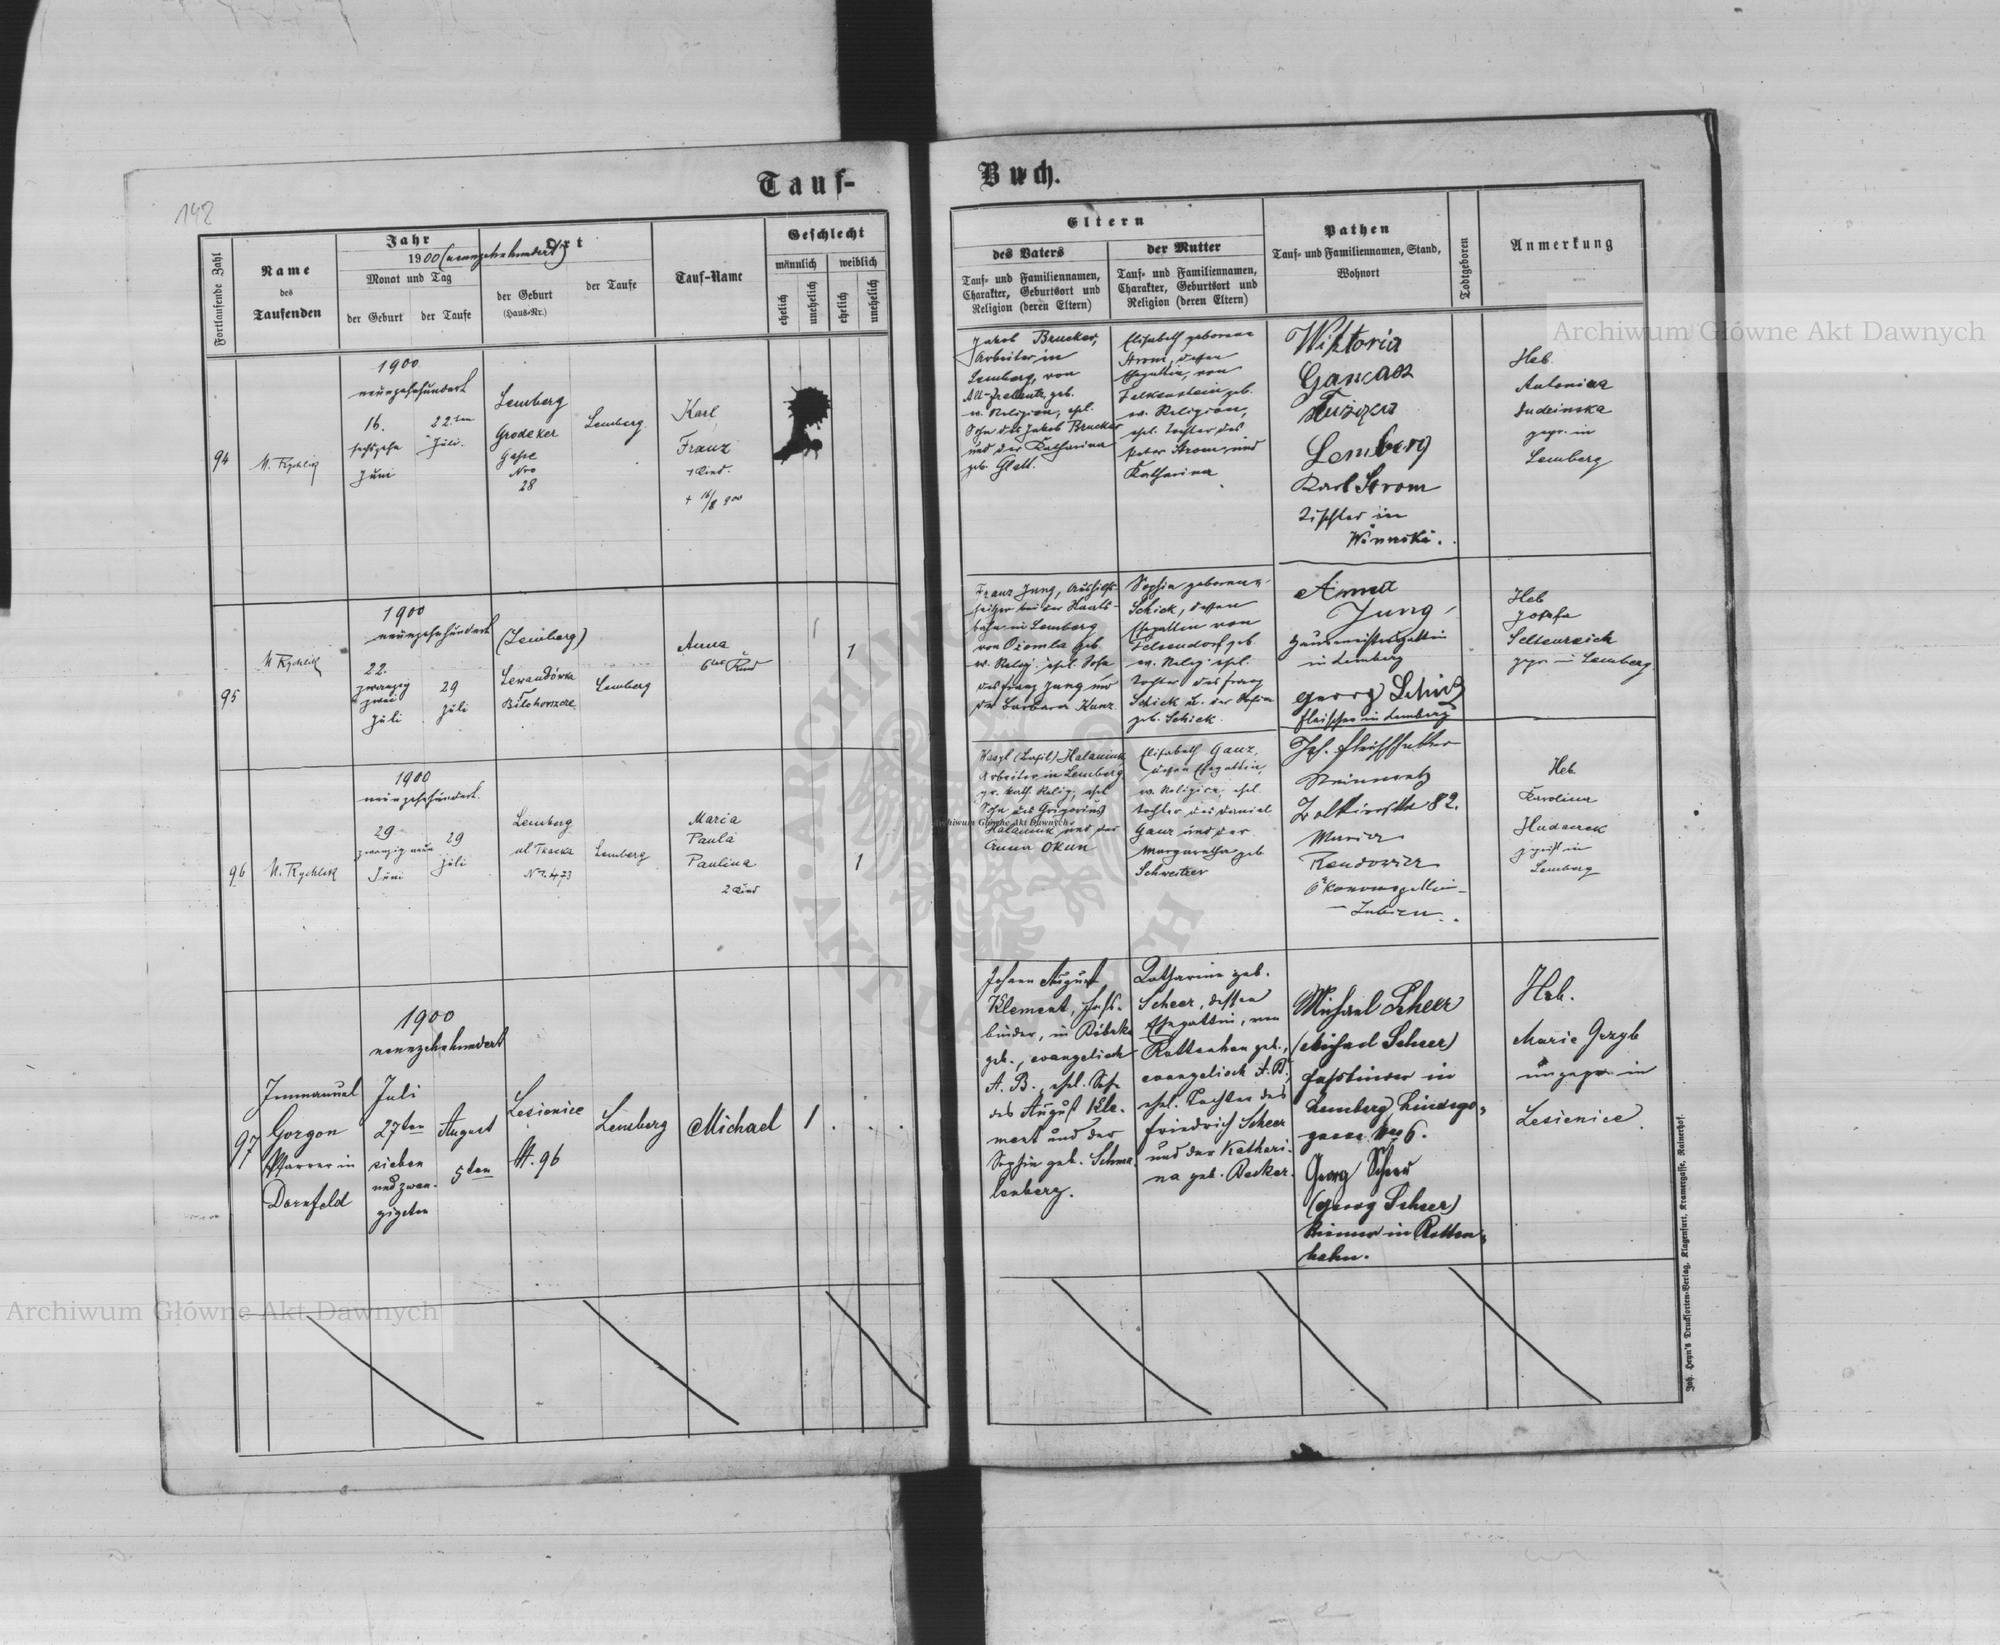 142
Tauf-
Buch.
Fortlaufende Zahl
Name
des
Taufenden
Jahr
1900 (neunzehnhundert)
Monat und Tag
der Geburt
der Taufe
Ort
der Geburt
(Haus-Nr.)
der Taufe
Tauf-Name
Geschlecht
männlich
weiblich
ehelich
unehelich
ehelich
unehelich
Eltern
des Vaters
Tauf- und Familiennamen,
Charakter, Geburtsort und
Religion (deren Eltern)
der Mutter
Tauf- und Familiennamen,
Charakter, Geburtsort und
Religion (deren Eltern)
Pathen
Tauf- und Familiennamen, Stand,
Wohnort
Todtgeboren
Anmerkung
94
1900
neunzehnhundert
16.
sechszehn
Juni
22.ten
Juli.
Lemberg
Grodeker
Gasse
Nro
28
Lemberg.
Karl,
Franz
1 Kind.
+ 16/8 900
Jakob Brucker,
Arbeiter in
Lemberg, von
geb.
ev. Religion, ehl.
Sohn des Jakob Brucker
und der Katharina
geb. Glass.
Elisabeth geborene
Strom, dessen
Ehegattin, von
Falkenstein geb.
ev. Religion,
ehel. Tochter des
Peter Strom und
Katharina
Wiktoria
Lemberg
Karl Strom
Tischler in
Winniki.
Heb.
Antonina
gepr. in
Lemberg
95
N. Rychlik
1900
neunzehnhundert
22.
zwanzig
zwei
Juli
29
Juli
(Lemberg)
Lewandówka
Biłohorszcze
Lemberg
Anna
6tes Kind
1
Franz Jung, Aushilfs-
heizer bei der Staats-
bahn in Lemberg
von Ożomla geb.
ev. Relig. ehel. Sohn
des Franz Jung und
der Barbara Kunz
Sophia geborene
Schick, dessen
Ehegattin von
geb.
ev. Relig. ehel.
Tochter des Franz
Schick u. der Sofia
geb. Schick.
Anna
Jung,
Hausmeistersgattin
in Lemberg
Georg Schick
Fleischer in Lemberg
Heb
Josefa
gepr. in Lemberg
96
N. Rychlik
1900
neunzehnhundert.
29
zwanzig neun
Juni
29
Juli
Lemberg
ul Tkacka
Nr. 473
Lemberg
Maria
Paula
Paulina
2 Kind
1
Wasyl (Basil) Halaniuk
Arbeiter in Lemberg
gr. kath. Relig., ehel
Sohn des Grigorius
Halaniuk und der
Anna Okun
Elisabeth Ganz,
dessen Ehegattin,
ev. Religion, ehel.
Tochter des Daniel
Ganz und der
Margaretha geb
Schweitzer
82.
Maria
Heb
Karolina
geprüft in
Lemberg
97
Immanuel
Gorgon
Pfarrer in
Dornfeld
1900
neunzehnhundert
Juli
27ten
sieben
und zwan-
zigsten
August
5ten
Lesienice
N. 96
Lemberg
Michael
1
Johann August
Klement, Fass-
binder, in Bóbrka
geb., evangelisch
A. B., ehel. Sohn
des August Kle-
ment und der
Sophie geb. Schma-
lenberg.
Katharina geb.
Scheer, dessen
Ehegattin, von
Rottenhan geb.,
evangelisch A. B.,
ehel. Tochter des
Friedrich Scheer
und der Kathari-
na geb. Becker.
Michael Scheer
(Michael Scheer)
Fassbinder in
Lemberg,
gasse Nro 6.
Georg Scheer
(Georg Scheer)
Riemer in Rotten-
hahn.
Heb.
Marie Grzyb
ungepr. in
Lesienice.
Joh. Heyn's Drucksorten-Verlag, Klagenfurt, Kramergasse, Rainerhof.
Archiwum Główne Akt Dawnych
Archiwum Główne Akt Dawnych
Archiwum Główne Akt Dawnych